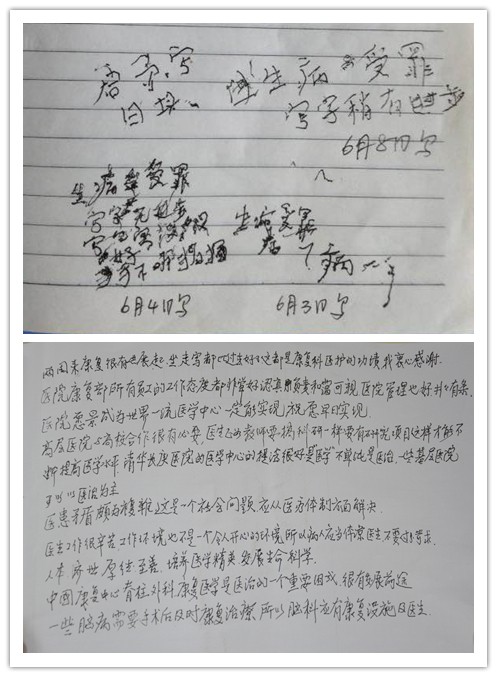 生病 受罪
写字稍有进步
6月8日写
生病受罪
6月4日写
生病受罪
6月3日写
两周来康复很有进展起坐走写都比过去好不这都是康复科医护的功绩我衷心感谢.
医院康复部所有员工的工作态度都非常好认真负责和蔼可视医院管理也好井井有条.
医院愿景成为世界一流医学中心一定能实现祝愿早日实现.
高层医院与高校合作很有必要医生与教师要搞科研一样要有研究项目这样才能不
断提高医学水平清华长庚医院的医学中心的想法很好是医学不单纯是医治,一些基层医院
可以以医治为主
医患矛盾颇为复雜,这是一个社会问题应从医疗体制方面解决.
医生工作很辛苦工作环境也不是一个令人开心的环境所以病人应当体谅医生不要过于苛求.
人本济世厚德至善.培养医学精英发展生命科学.
中国康复中心脊柱外科康复医学是医治的一个重要因或很有发展前途
一些脑病需要手术后及时康复治療所以脑科应有康复设施及医生.